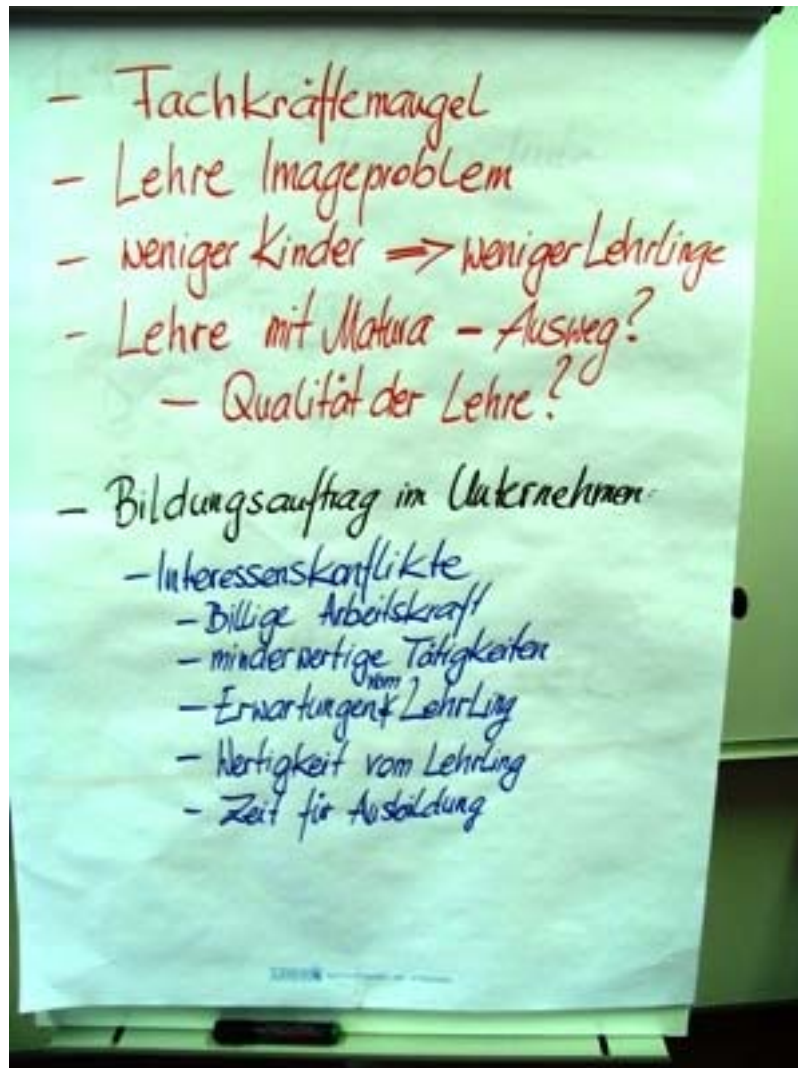 - Fachkräftemangel
- Lehre Imageproblem
- weniger Kinder => weniger Lehrlinge
- Lehre mit Matura - Ausweg?
- Qualität der Lehre?
- Bildungsauftrag im Unternehmen:
- Interessenskonflikte
- Billige Arbeitskraft
- minderwertige Tätigkeiten
- Erwartungen vom Lehrling
- Wertigkeit vom Lehrling
- Zeit für Ausbildung